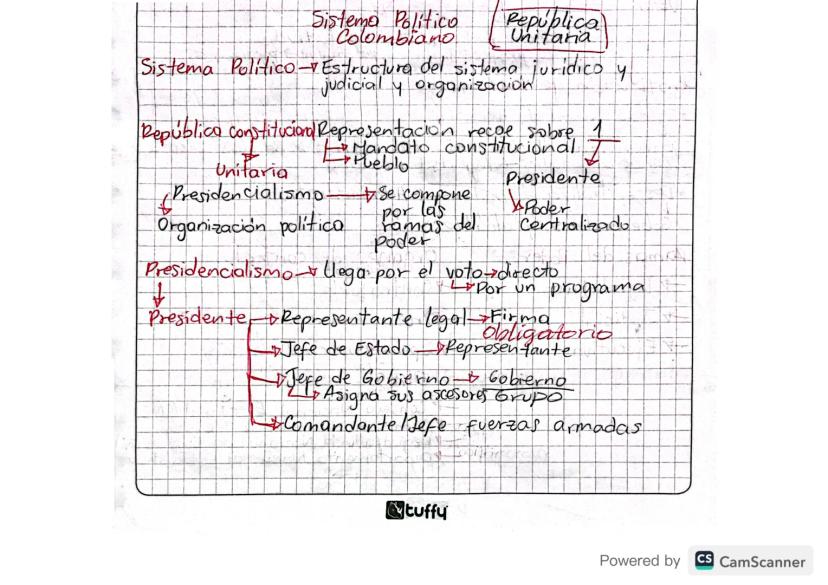 Sistema Político
Colombiano
República
Unitaria
Sistema Político → Estructura del sistema jurídico y
judicial y organización
República constitucional Representación recae sobre 1
→ Mandato constitucional
→ Pueblo
Unitaria
Presidente
Presidencialismo → Se compone
por las
ramas del
poder
Organización política
Poder
Centralizado
Presidencialismo → Llega por el voto → directo
→ Por un programa
Presidente → Representante legal → Firma
Obligatorio
→ Jefe de Estado → Representante
→ Jefe de Gobierno → Gobierno
→ Asigna sus ascesores Grupo
→ Comandante/Jefe fuerzas armadas
tuffy
Powered by CS CamScanner